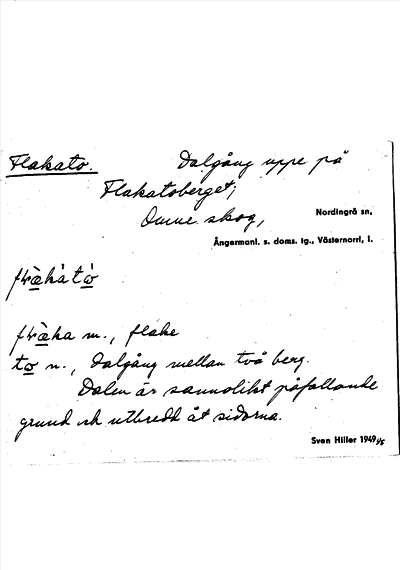 Flakato. Dalgång uppe på
Flakatoberget;
Omne skog,
Nordingrå sn,
Ångermanl. s. doms. tg., Västernorrl, l.
m., flake
n., dalgång mellan två berg.
Dalen är sannolikt påfallande
grund och utbredd åt sidorna.
Sven Hiller 1949